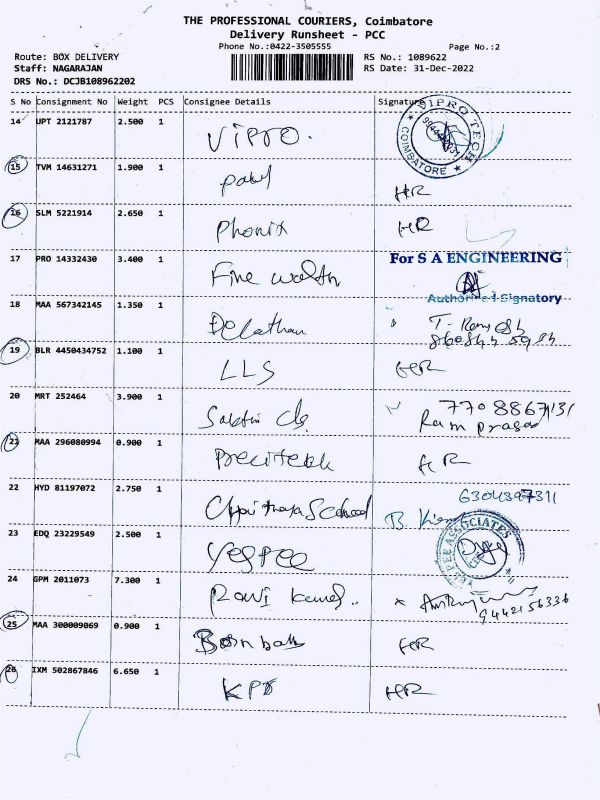 THE PROFESSIONAL COURIERS, Coimbatore
Delivery Runsheet - PCC
Phone No.:0422-3505555 Page No.:2
Route: BOX DELIVERY RS No.: 1089622
Staff: NAGARAJAN RS Date: 31-Dec-2022
DRS No.: DCJB108962202
S No Consignment No Weight PCS Consignee Details Signature
14 UPT 2121787 2.500 1 VIPRO. VIPRO TECH COIMBATORE
15 TVM 14631271 1.900 1 HR
16 SLM 5221914 2.650 1 Phonix HR
17 PRO 14332430 3.400 1 Fine For S A ENGINEERING
Authorised Signatory
18 MAA 567342145 1.350 1 T. Ramesh
19 BLR 4450434752 1.100 1 LLS HR
20 MRT 252464 3.900 1 Sakthi 7708867131
Ram prasad
21 MAA 296080994 0.900 1 Precitech HR
22 HYD 81197072 2.750 1 School 6304897311
B.
23 EDQ 23229549 2.500 1 Yespee YES PEE ASSOCIATES
24 GPM 2011073 7.300 1 Ravi 9442156336
25 MAA 300009069 0.900 1 HR
26 IXM 502867846 6.650 1 HR